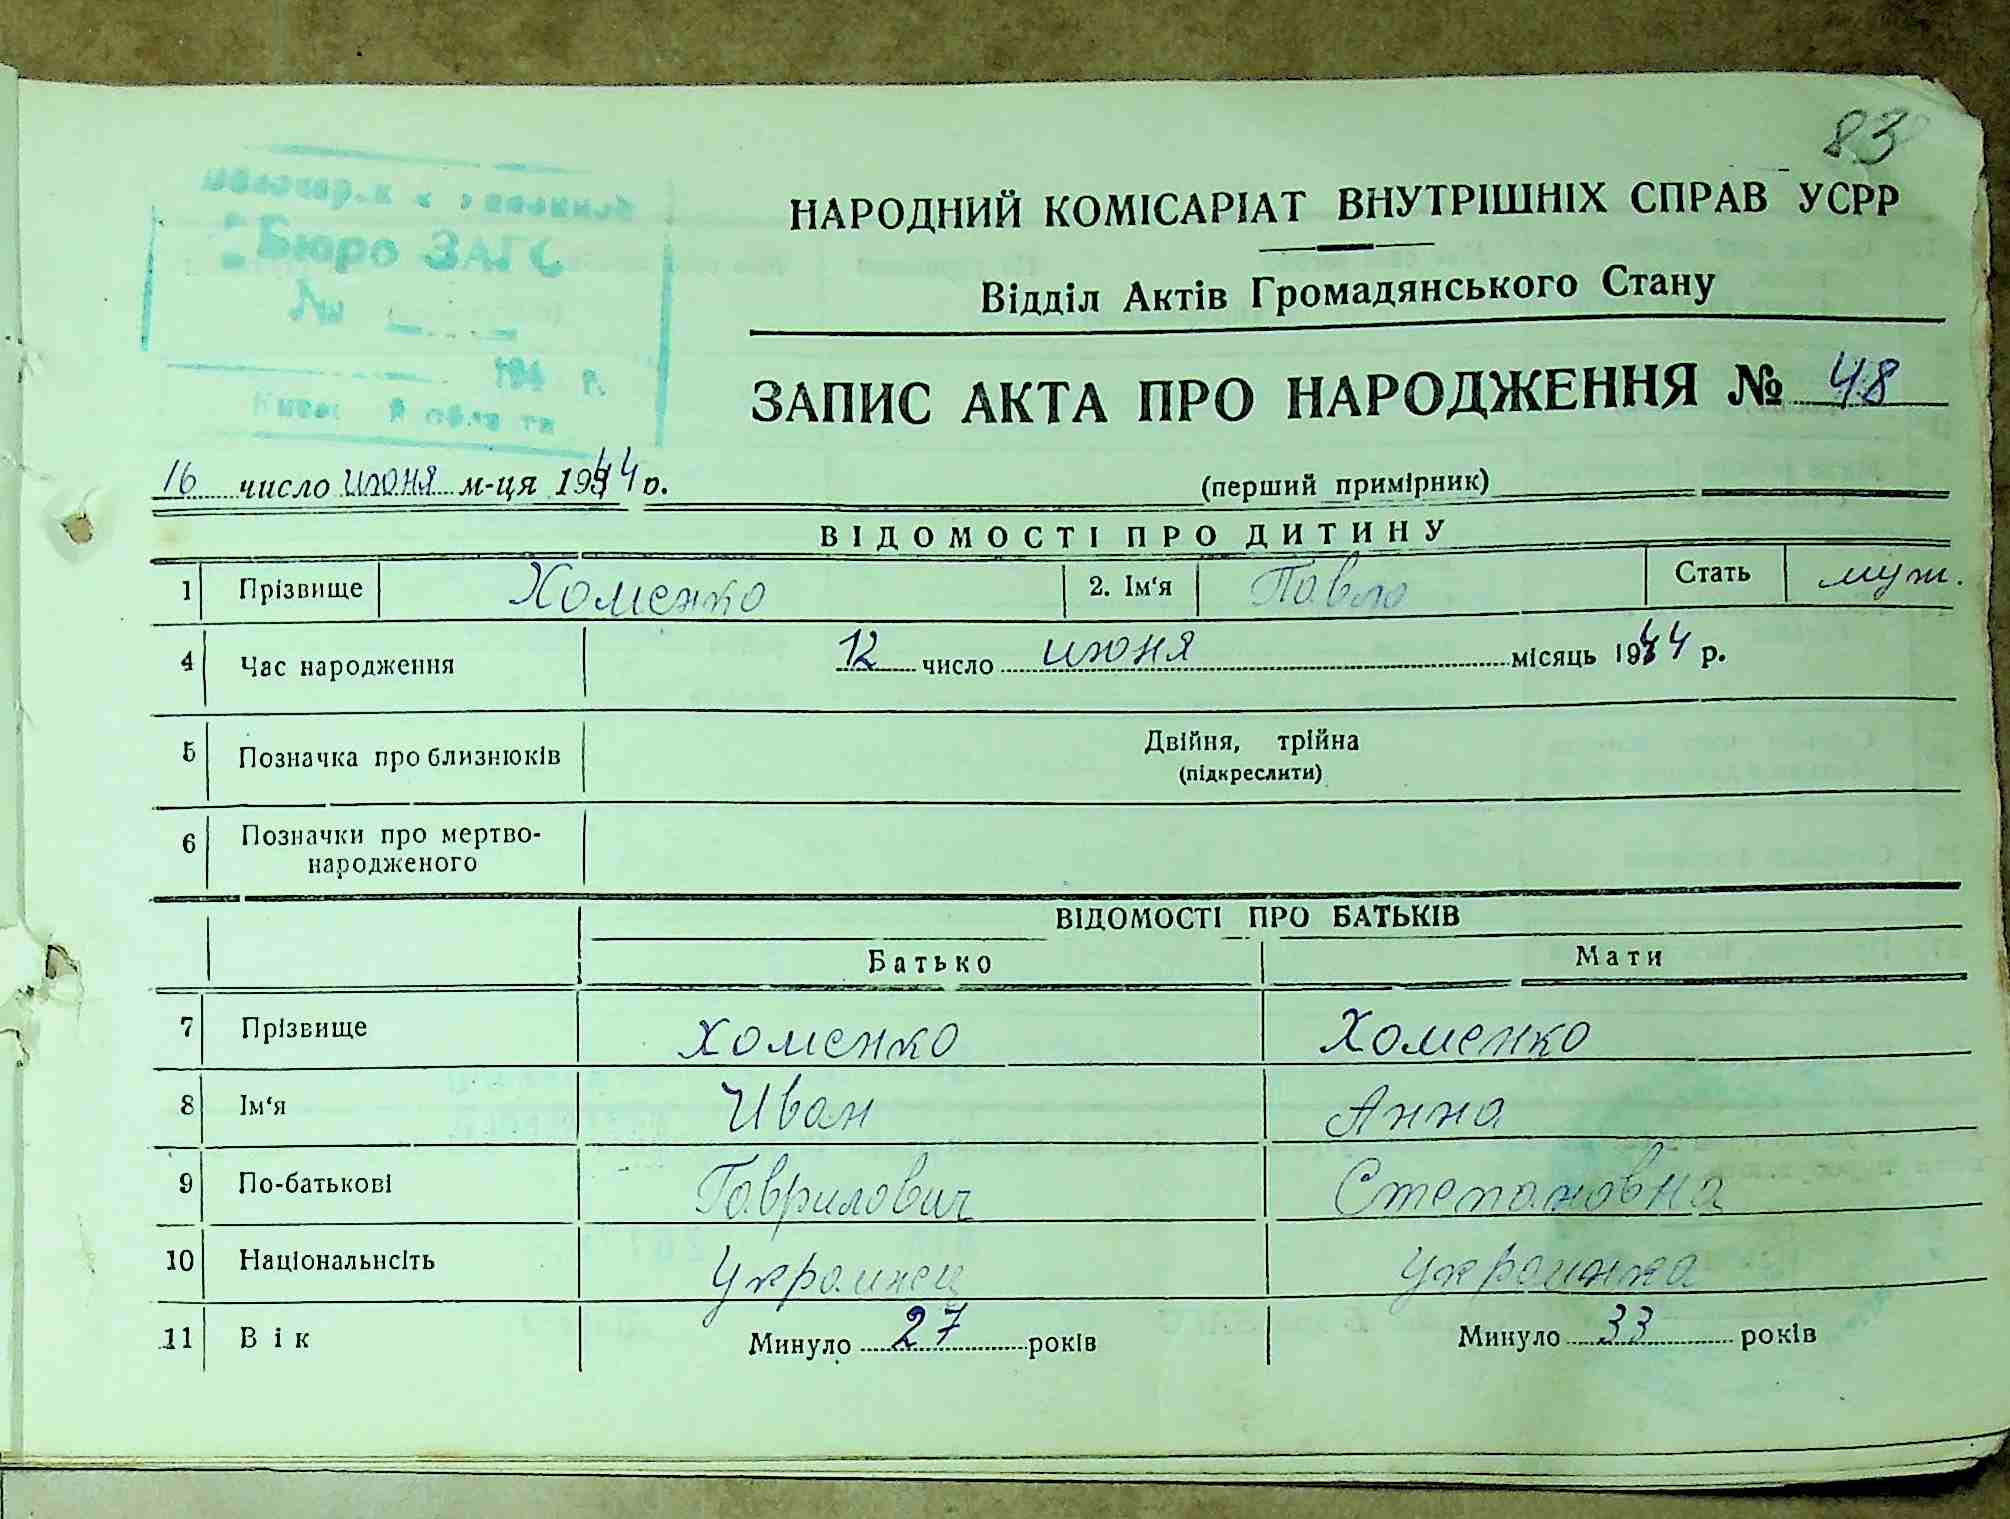 83
Бюро ЗАГС
№
194 г.
НАРОДНИЙ КОМІСАРІАТ ВНУТРІШНІХ СПРАВ УСРР
Відділ Актів Громадянського Стану
ЗАПИС АКТА ПРО НАРОДЖЕННЯ № 48
16 число июня м-ця 1944 р.
(перший примірник)
ВІДОМОСТІ ПРО ДИТИНУ
1 Прізвище Хоменко 2. Ім'я Павло Стать муж.
4 Час народження 12 число июня місяць 1944 р.
5 Позначка про близнюків Двійня, трійна
(підкреслити)
6 Позначки про мертво-
народженого
ВІДОМОСТІ ПРО БАТЬКІВ
Батько Мати
7 Прізвище Хоменко Хоменко
8 Ім'я Иван Анна
9 По-батькові Гаврилович Степановна
10 Національнсіть Украинец украинка
11 Вік Минуло 27 років Минуло 33 років